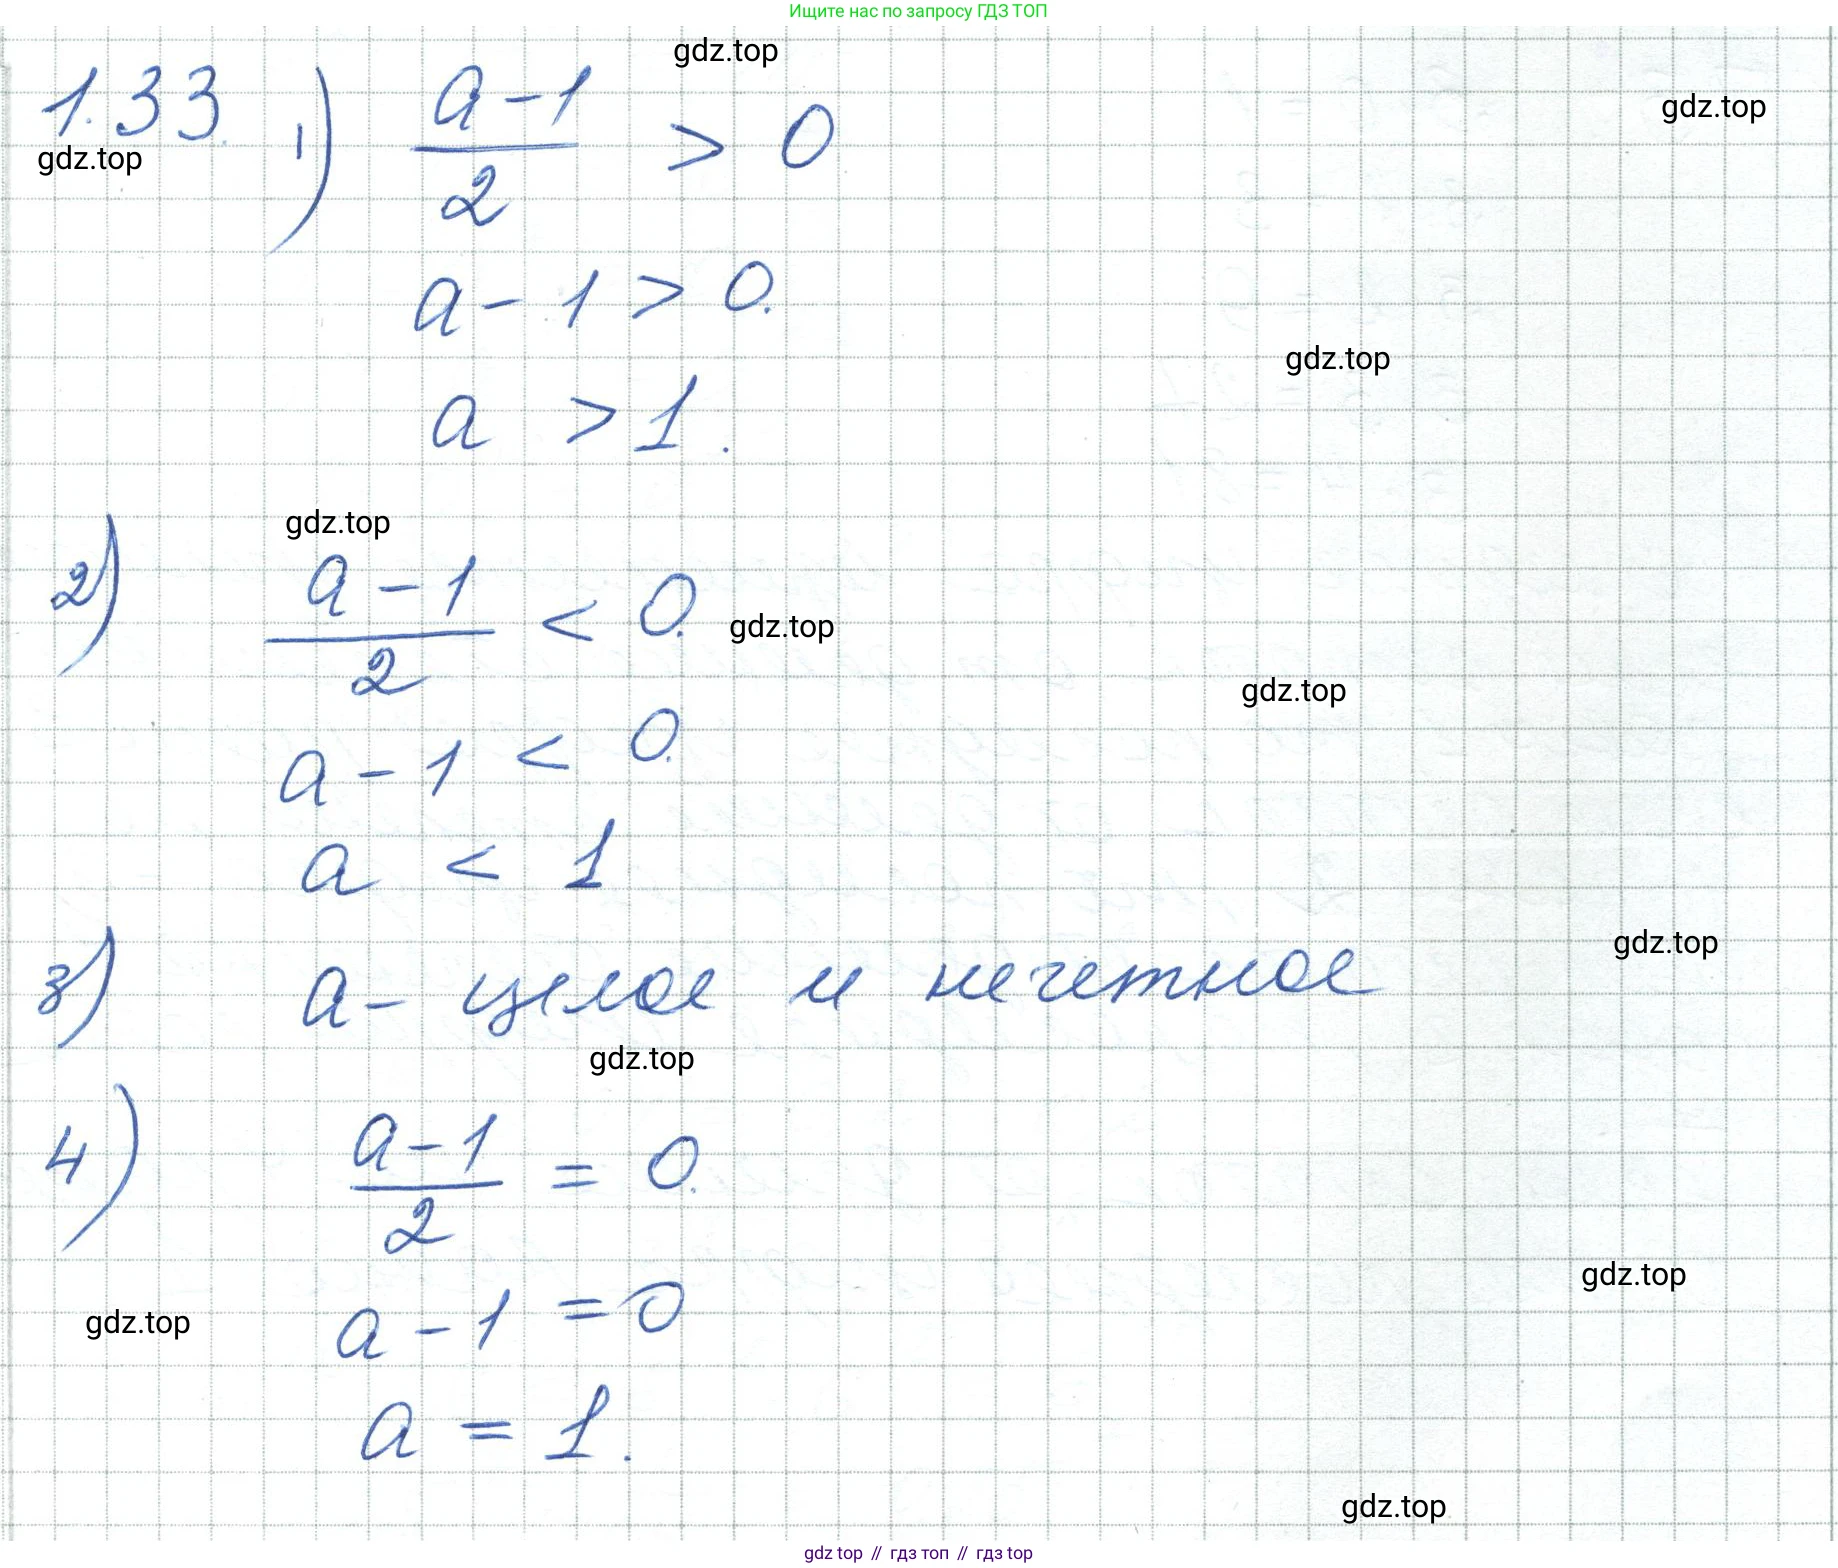 Ищите нас по запросу ГДЗ ТОП
gdz.top
gdz.top
1.33. 1) (a-1)/2 > 0
gdz.top
a - 1 > 0.
gdz.top
a > 1.
gdz.top
2) (a-1)/2 < 0.
gdz.top
gdz.top
a - 1 < 0.
a < 1
gdz.top
3) a - целое и нечетное
gdz.top
4) (a-1)/2 = 0.
gdz.top
gdz.top
a - 1 = 0
a = 1.
gdz.top
gdz top // гдз топ // гдз top